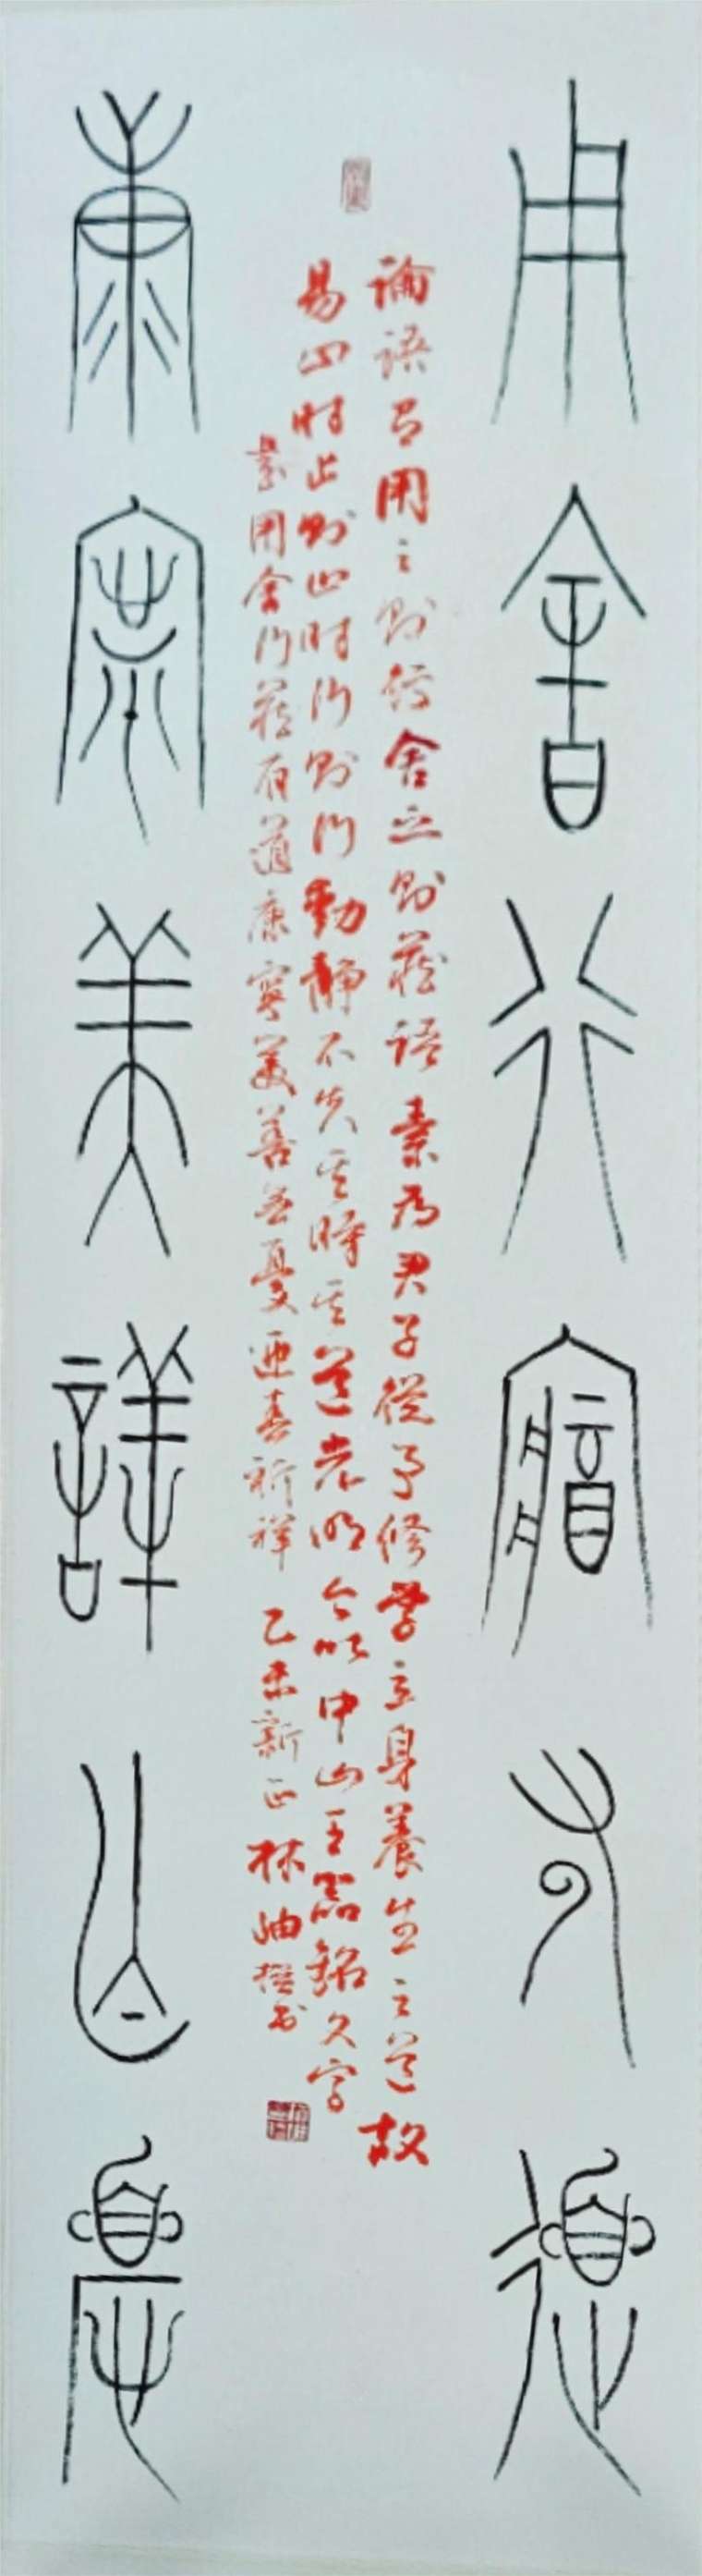 用舍行藏有道
論語曰用之則行舍之則藏語素為君子從事修學立身養生之道故
易曰時止則止時行則行動靜不失其時其道光明今以中山王器銘文字
集用舍行藏有道康寧美善無憂迎喜祈祥 乙未新正 林岫撰書
康寧美善亡憂